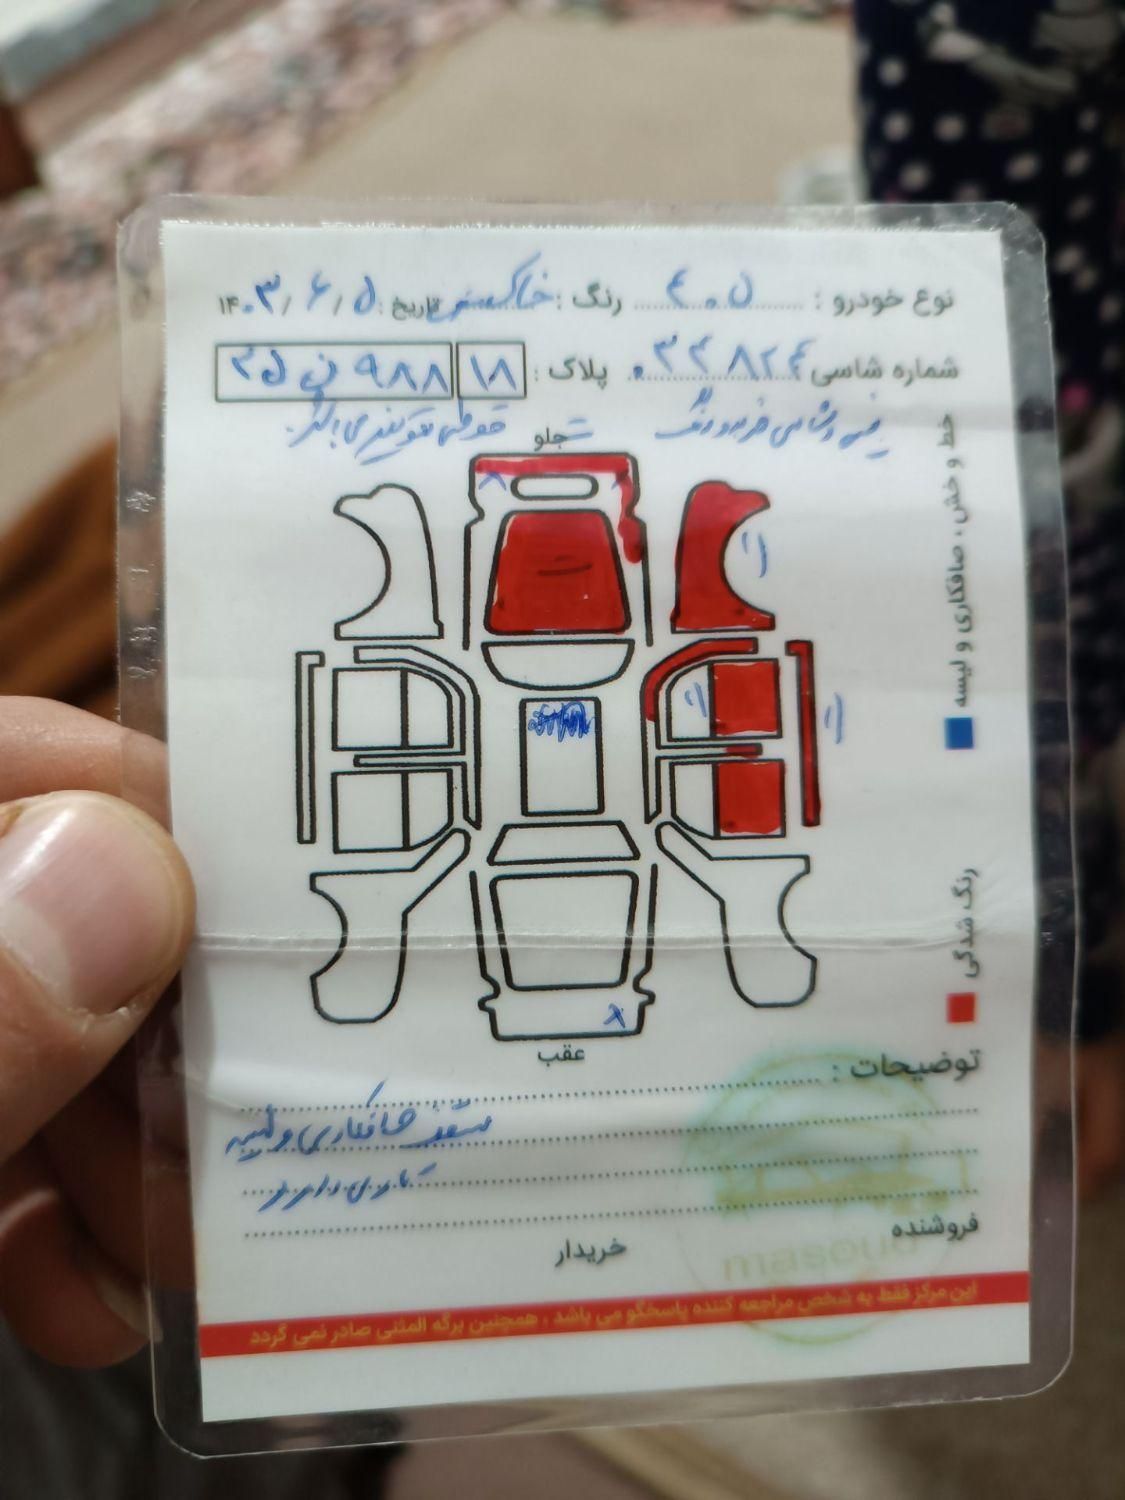 نوع خودرو : ۴۰۵ رنگ : خاکستری تاریخ : ۱۴۰۳/۶/۵
شماره شاسی ۰۳۲۸۲۴ پلاک : ۱۸ ۹۸۸ ن ۳۵
جلو
خط و خش ، صافکاری و لیسه
رنگ شدگی
عقب
توضیحات :
سقف صافکاری و لیسه
کاری دارد
فروشنده
خریدار
masoud
این مرکز فقط به شخص مراجعه کننده پاسخگو می باشد ، همچنین برگه المثنی صادر نمی گردد